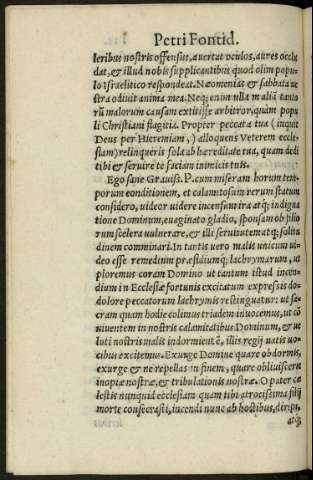 Petri Fontid.
leribus nostris offensus, auertat oculos, aures occlu
dat, & illud nobis supplicantibus quod olim popu
lo israelitico respondeat. Næomenias & sabbata ue
stra odiuit anima mea. Neq; enim ulla malū tanto
rū malorum causam extitisse arbitror, quàm popu
li Christiani flagitia. Propter peccata tua (inquit
Deus per Hieremiam,) alloquens Veterem eccle-
siam) relinqueris sola ab hæreditate tua, quam dedi
tibi & seruire te faciam inimicis tuis.
Ego sane Grauiss. P. cum miseram horum tem-
porum conditionem, et calamitosum rerum statum
considero, uideor uidere incensum ira atq; indigna
tione Dominum, euaginato gladio, sponsam ob filio
rum scelera uulnerare, & illi seruitutem atq; solitu
dinem comminari. In tantis uero malis unicum ui-
deo esse remedium præsidiumq; lachrymarum, ut
ploremus coram Domino ut tantum istud incen-
dium in Ecclesiæ fortunis excitatum expressis do-
dolore peccatorum lachrymis restinguatur: ut sa-
cram quam hodie colimus triadem inuocemus, ut cō
niuentem in nostris calamitatibus Dominum, & ue
luti nostris malis indormientē, illis regij uatis uo-
cibus excitemus. Exurge Domine quare obdormis,
exurge & ne repellas in finem, quare obliuisceris
inopiæ nostræ, & tribulationis nostræ. O pater cæ
lestis nunquid ecclesiam quam tibi atrocissima filij
morte consecrasti, incendi nunc ab hostibus, diripi,
atq;